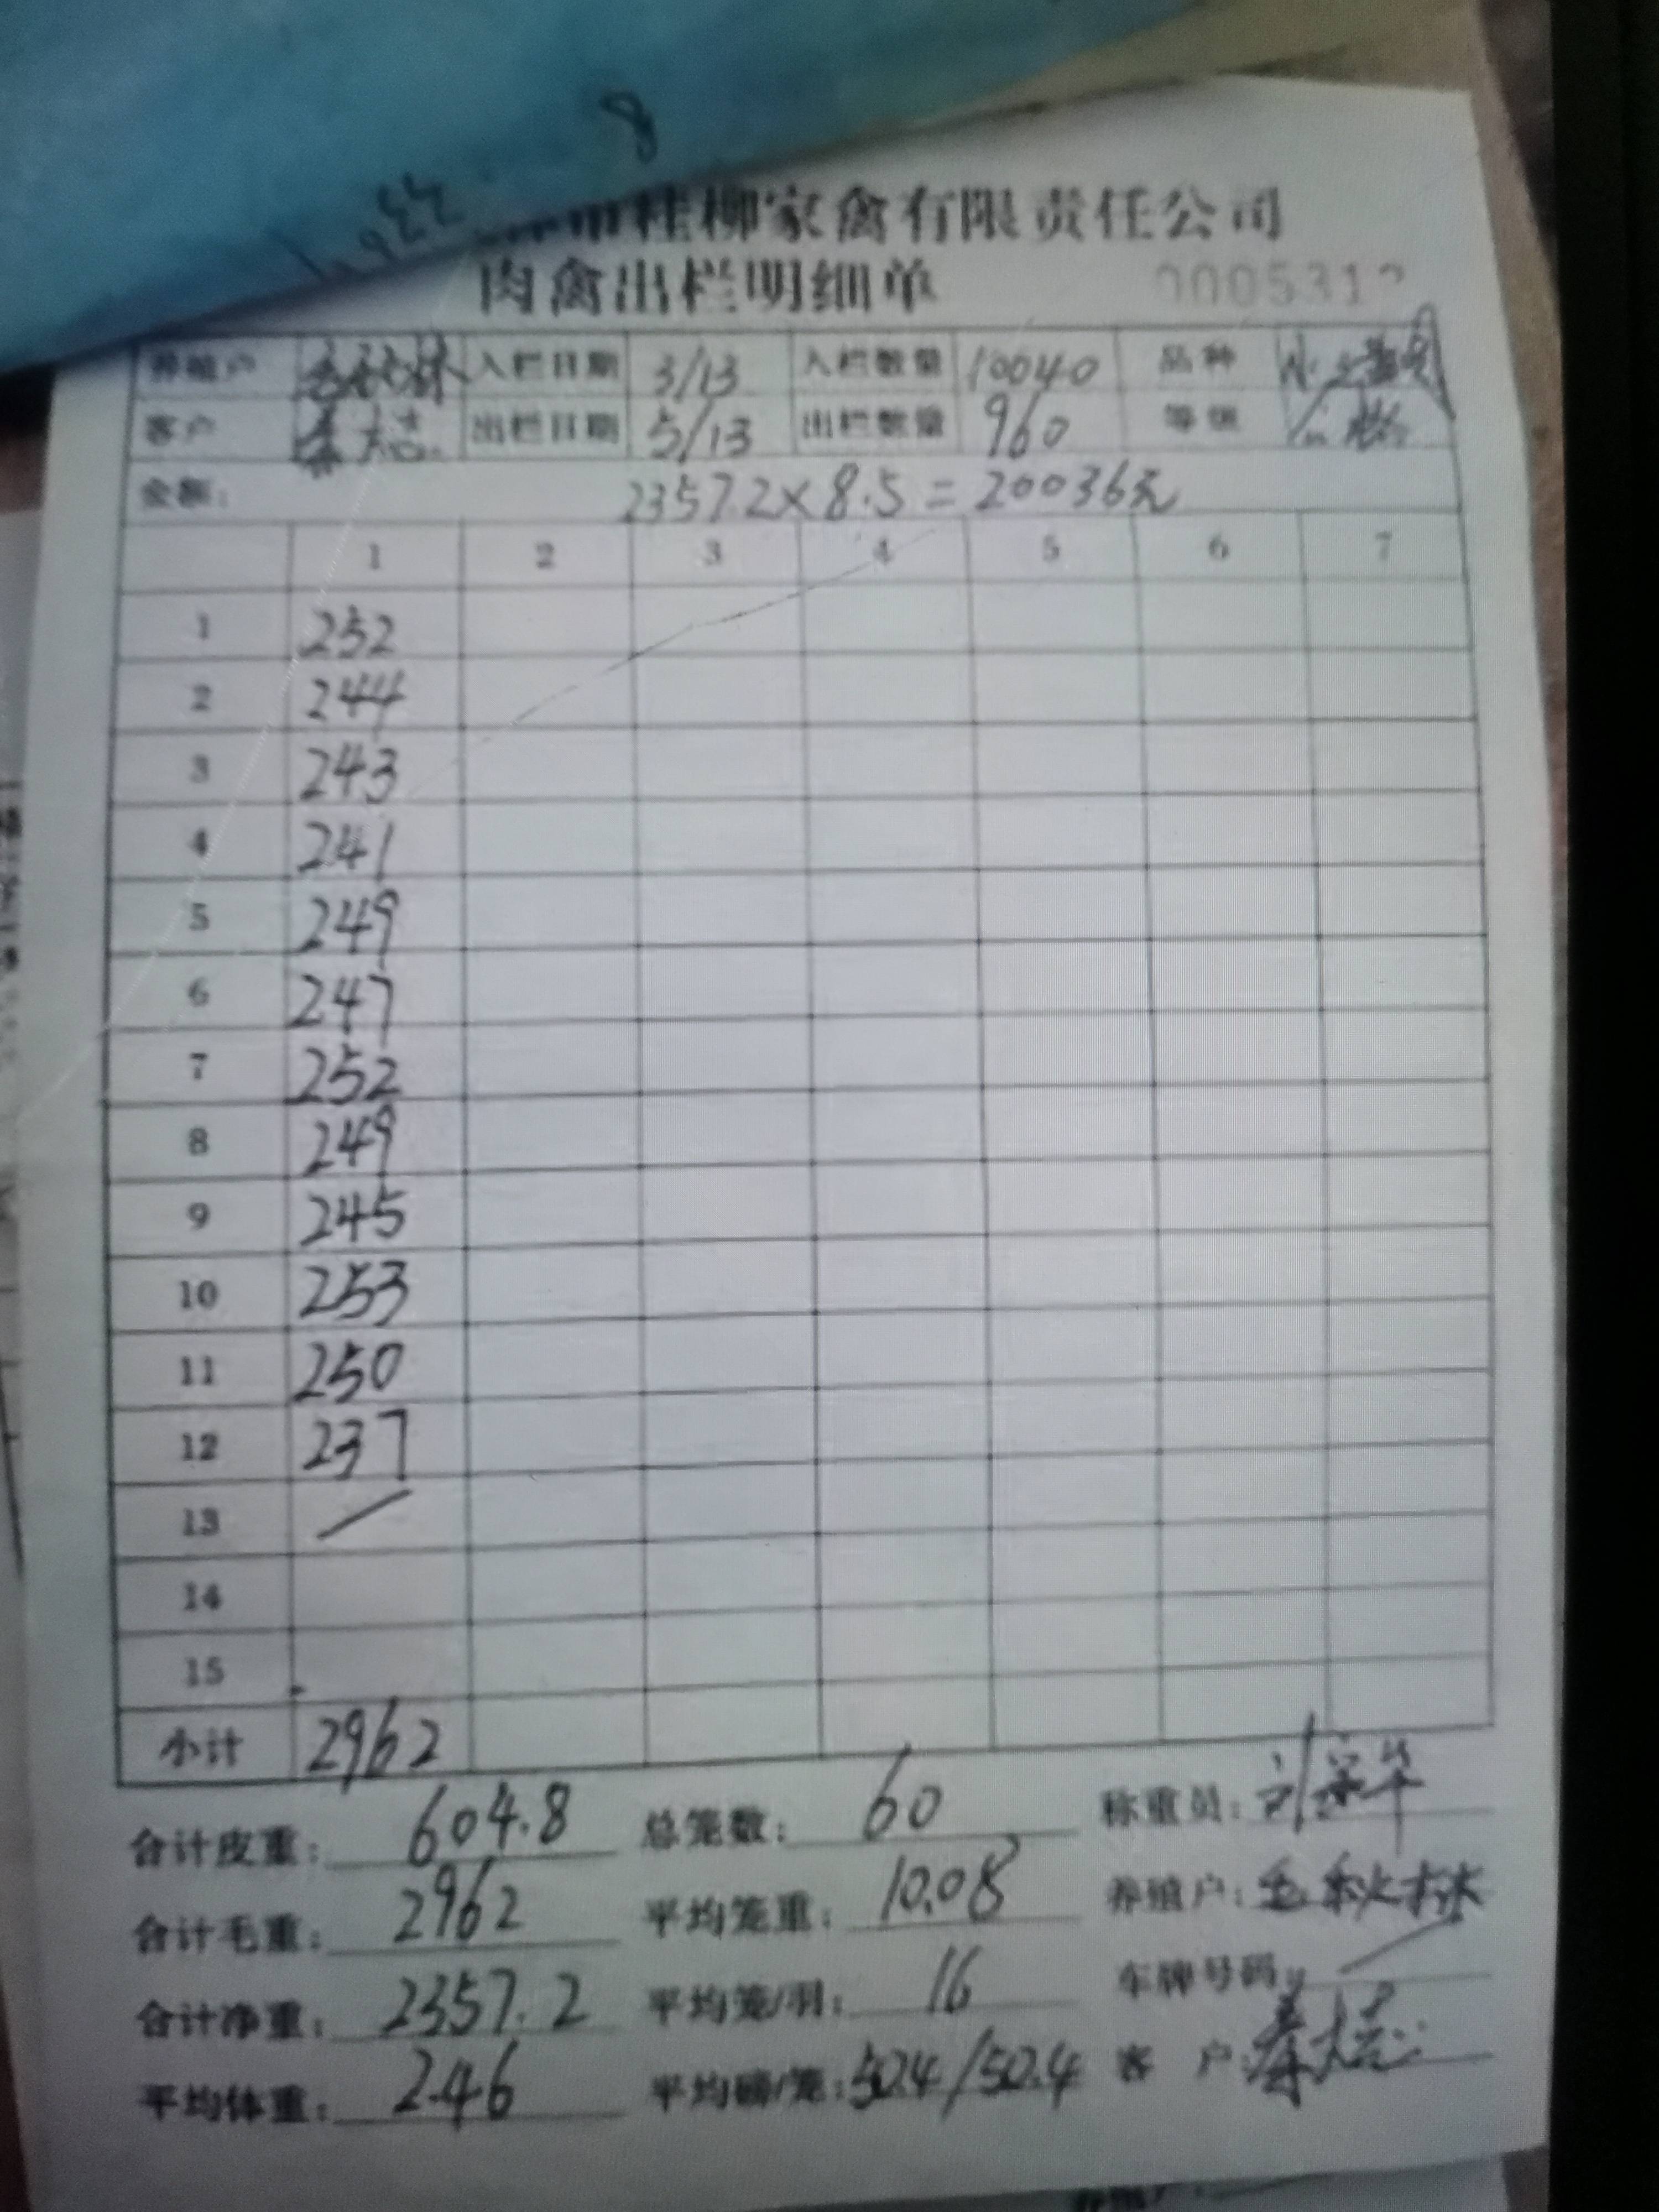 8
桂柳家禽有限责任公司
肉禽出栏明细单 000531
养殖户 入栏日期 3/13 入栏数量 10040 品种
客户 出栏日期 5/13 出栏数量 960 等级
金额: 2357.2×8.5=20036元
1 2 3 4 5 6 7
1 252
2 244
3 243
4 241
5 249
6 247
7 252
8 249
9 245
10 253
11 250
12 237
13 /
14
15
小计 2962
合计皮重: 604.8 总笼数: 60 称重员: 刘
合计毛重: 2962 平均笼重: 10.08 养殖户: 秋林
合计净重: 2357.2 平均笼/羽: 16 车牌号码: /
平均体重: 2.46 平均磅/笼: 50.4/50.4 客 户: